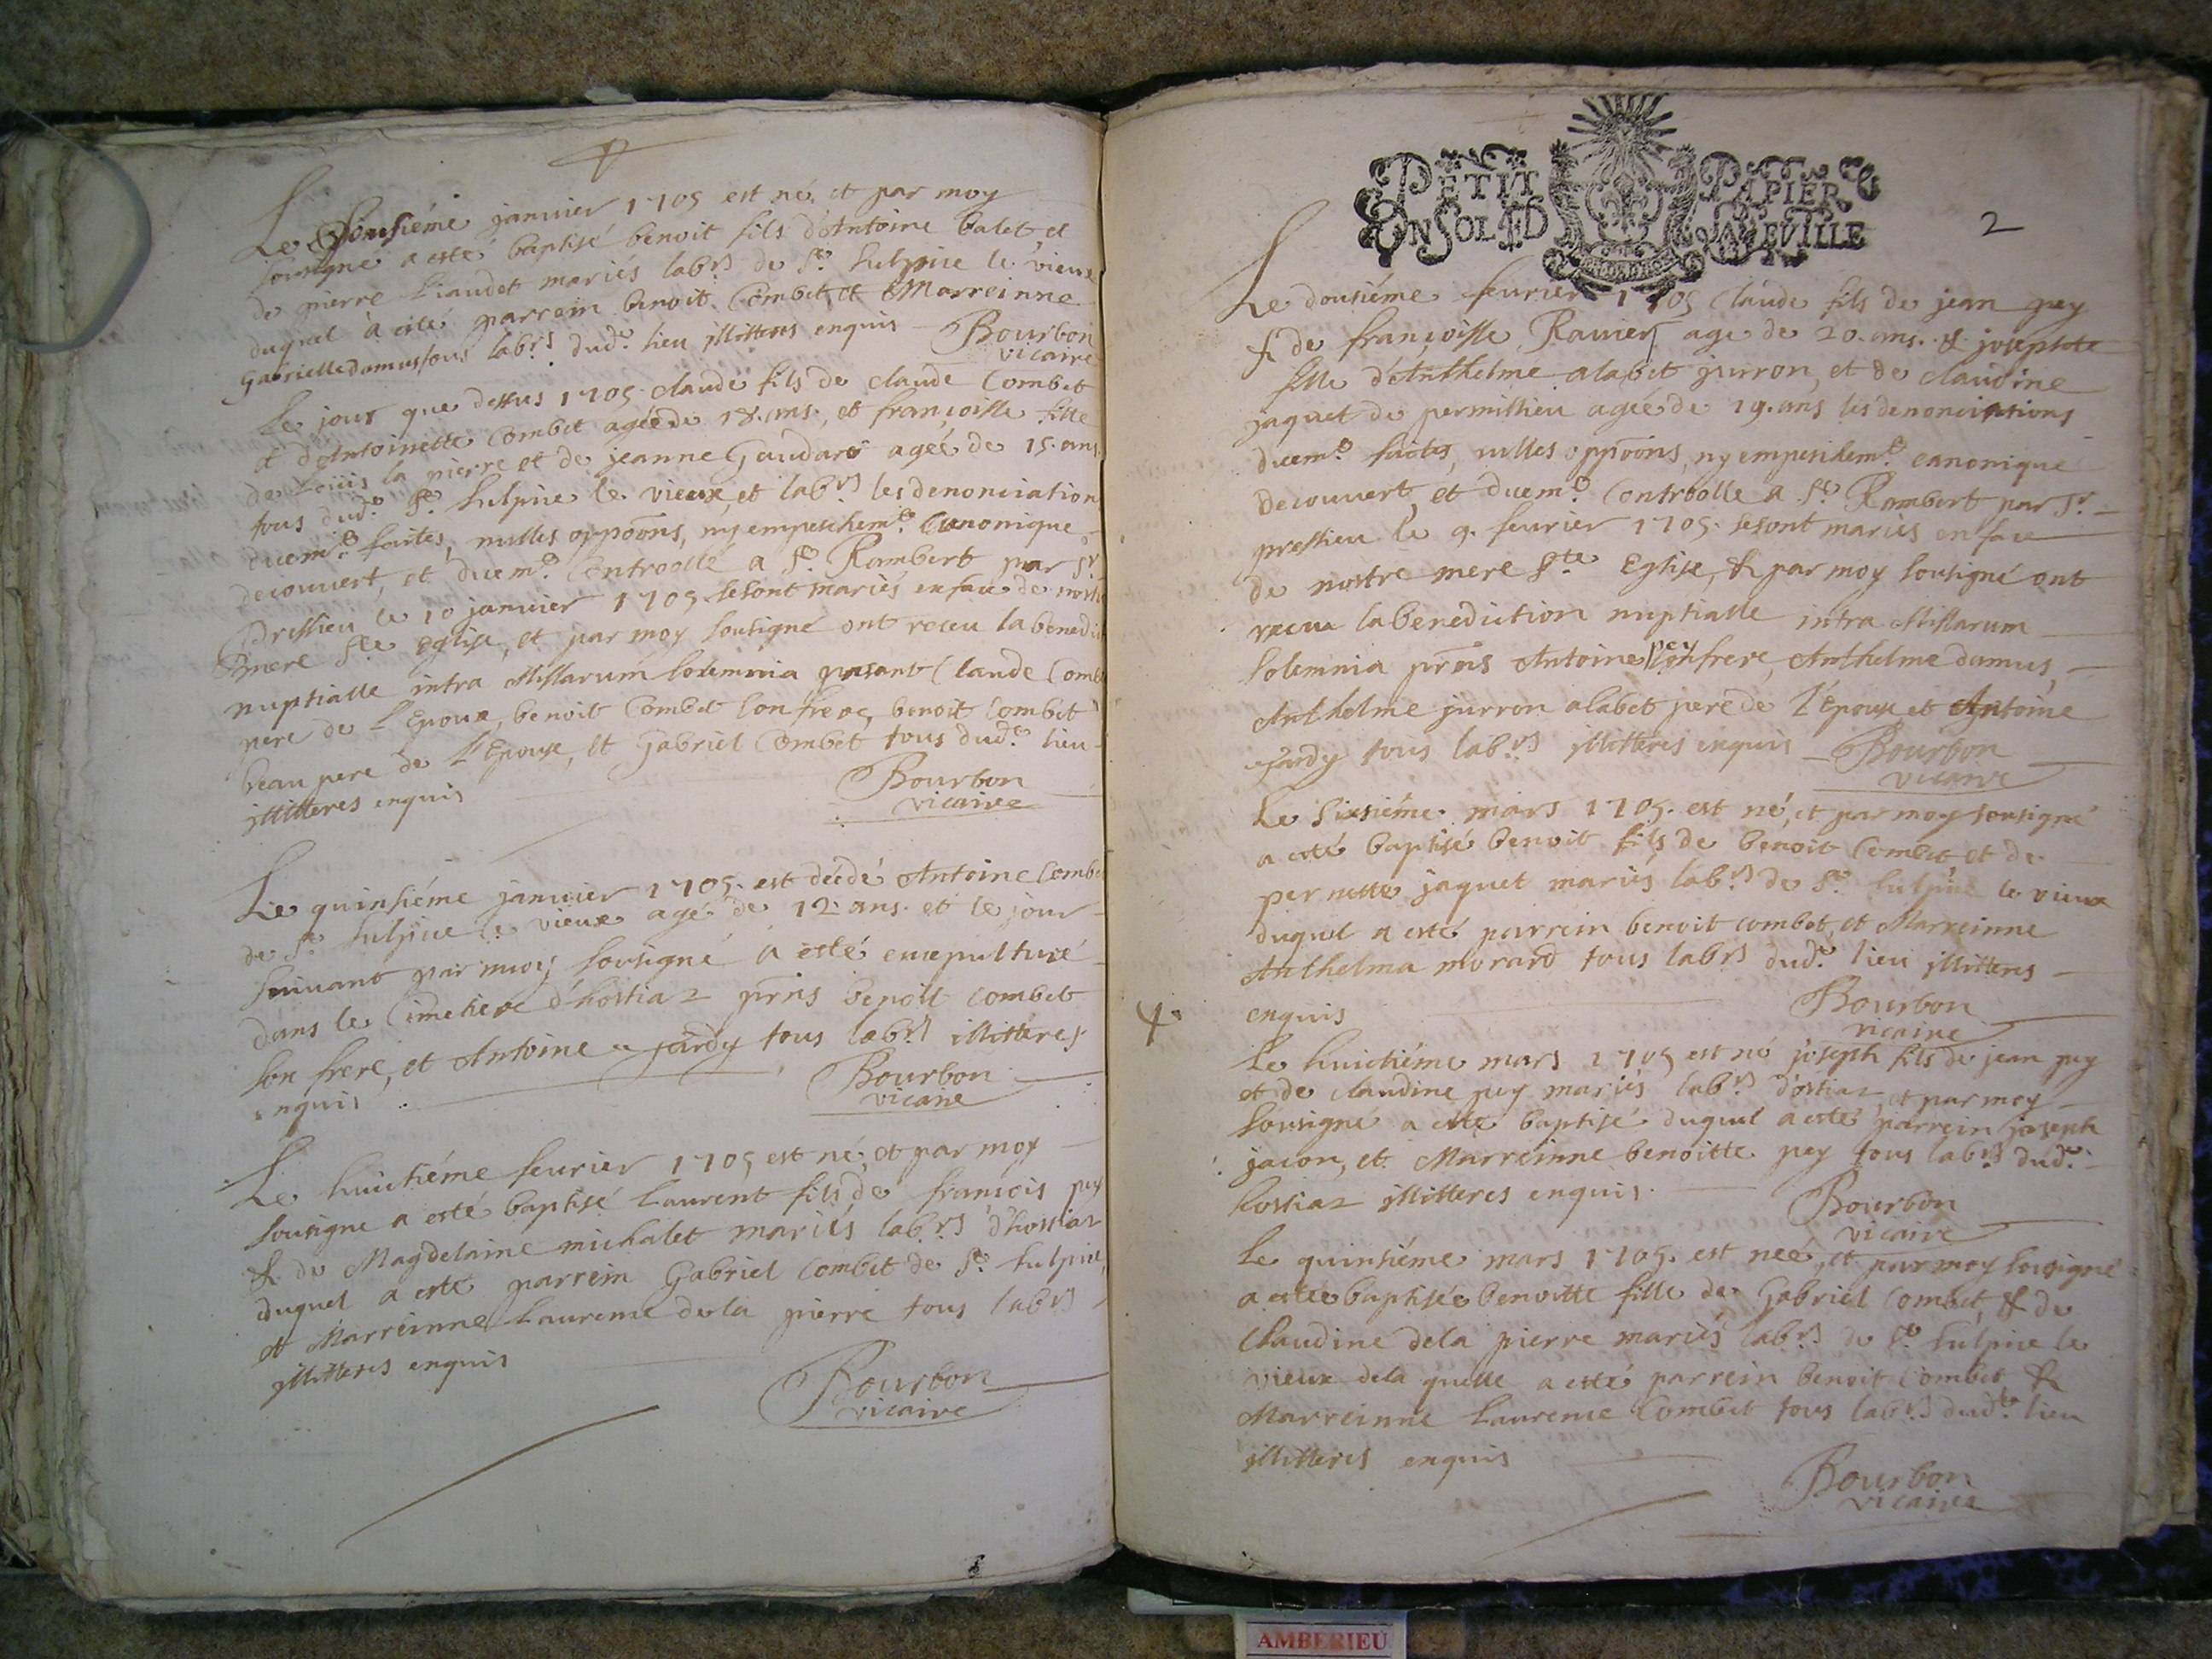 Le janvier 1705 est né, et par moy
sousigné a esté baptisé benoit fils d'Antoine balet, et
de pierre liaudet mariés labrs de St. Sulpice le vieux
duquel à esté parrein benoit Combet, et Marreinne
Gabrielle damus sous labrs dudt. lieu illitteres enquis Bourbon
vicaire
Le jour que dessus 1705. claude fils de claude Combet
et d'Antoinette Combet agée de 18. ans, et françoisse fille
de Louis la pierre et de jeanne Gaudard agée de 15. ans
tous dudt. St. Sulpice le vieux, et labrs les denonciation
duemt. faites, nulles oppoons, ny empeschemt. Canonique
decouvert, et duemt. Controollé a St. Rambert par Sr
Pressieu le 10 janvier 1705 se sont mariés en face de nostre
mere Ste Eglise, et par moy sousigné ont receu la benedi
nuptialle intra Missarum solemnia presant Claude Comb
pere de l'Epoux, benoit Combet son frere, benoit Combet
beau pere de l'Epouse, et Gabriel Combet tous dudt. lieu
illitteres enquis
Bourbon
vicaire
Le quinsiéme janvier 1705. est décdé Antoine Combe
de St. Sulpice le vieux agé de 12. ans. et le jour
suivant par moy sousigné à esté ensepulturé
dans le Cimetiere d'hostiaz pnts benoit Combet
son frere, et Antoine jardy tous labrs illitteres
enquis
Bourbon
vicaire
Le huictiéme feurier 1705 est né, et par moy
sousigne a esté baptisé Laurent fils de françois pey
& de Magdelaine michalet mariés labrs d'hostiaz
duquel a esté parrein Gabriel Combet de St. Sulpice,
et Marreinne Laurence dela pierre tous labrs
illitteres enquis
Bourbon
vicaire
PETIT PAPIER
UN SOL
2
Le dousiéme feurier 1705 Claude fils de jean pey
& de françoisse Ravier age de 20. ans. & josephte
fille d'Anthelme alabet jurron, et de claudine
jaquet de permillieu agée de 19. ans les denonciations
duemt. faites, nulles oppoons, ny empeschemt. canonique
decouvert, et duemt. Controolle a St. Rambert par Sr.
pressieu le 9. feurier 1705. se sont mariés en face
de nostre mere Ste Eglise, & par moy sousigné ont
receu la benediction nuptialle intra Missarum
solemnia pnts Antoine pey son frere, Anthelme damus,
Anthelme jurron alabet pere de l'Epouse et Antoine
jardy tous labrs illitteres enquis Bourbon
vicaire
Le sixiéme mars 1705. est né, et par moy sousigné
a esté baptisé benoit fils de benoit Combet, et de
pernette jaquet mariés labrs de St. Sulpice le vieux
duquel a esté parrein benoit combet, et Marreinne
Anthelma morard tous labrs dudt. lieu illitteres
enquis
Bourbon
vicaire
Le huictiéme mars 1705 est né joseph fils de jean pey
et de claudine pey mariés labrs d'ostiaz, et par moy
sousigné a esté baptisé duquel a esté parrein joseph
jacon, et Marreinne benoitte pey tous labrs dudt.
hostiaz illitteres enquis.
Bourbon
vicaire
Le quinsiéme mars 1705. est neé, et par moy sousigné
a esteé baptiseé benoitte fille de Gabriel Combet, & de
Claudine dela pierre mariés labrs de St. Sulpice le
vieux dela quelle a esté parrein benoit combet &
Marreinne Laurence Combet tous labrs dudt. lieu
illitteres enquis
Bourbon
vicaire
AMBERIEU